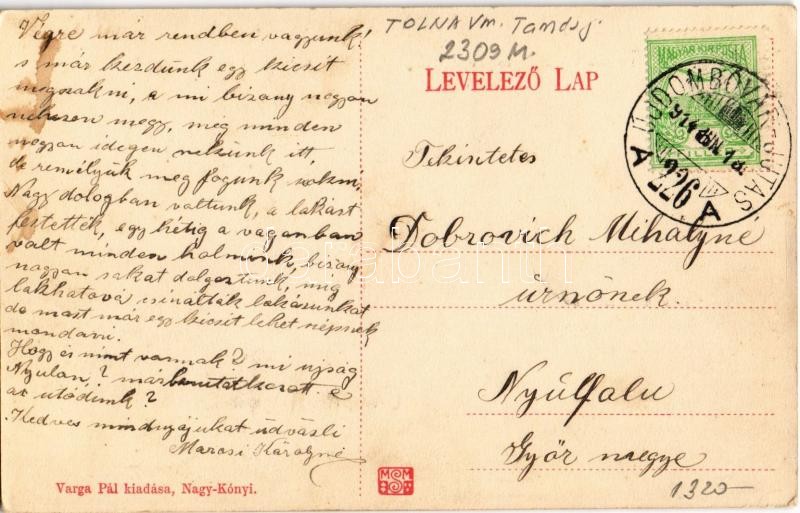 Végre már rendben vagyunk!
s már kezdünk egy kicsit
megszokni, a mi bizony nagyon
nehezen megy, még minden
nagyon idegen nekünk itt,
de reméljük meg fogunk szokni.
Nagy dologban voltunk, a lakást
festették, egy hétig a vaganban
volt minden holmink, bizony
nagyon sokat dolgoztunk, mig
lakhatová csinálták lakásunkat
de most már egy kicsit lehet népsnek
mondani.
Hogy és mint vannak? mi ujság
Nyulon? már bemutatkozott e
az utódunk?
Kedves mindnyájukat üdvözli
Marosi Károlyné
Varga Pál kiadása, Nagy-Kónyi.
TOLNA Vm.
2309 M.
LEVELEZŐ LAP
MAGYAR KIR. POSTA
ÚJDOMBÓVÁR-JUTAS
226
A A
Tekintetes
Dobrovich Mihályné
úrnőnek.
Nyúlfalu
Győr megye
MSM
1320-
darabanth